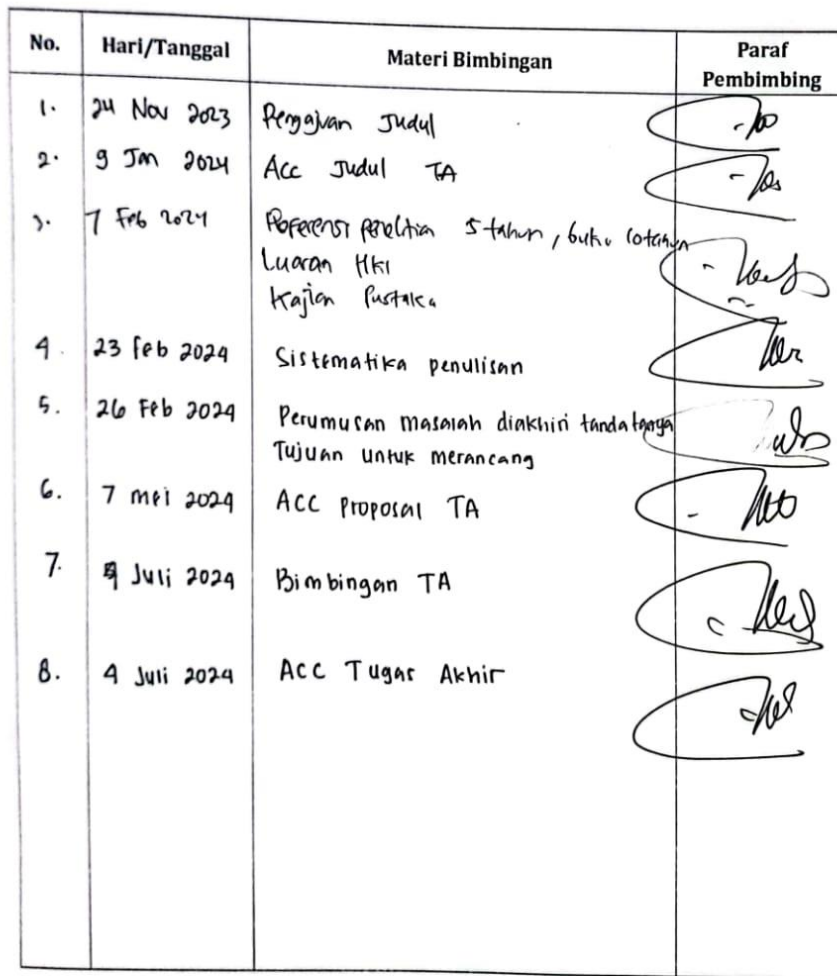 No. Hari/Tanggal Materi Bimbingan Paraf Pembimbing
1. 24 Nov 2023 Pengajuan Judul
2. 9 Jan 2024 Acc Judul TA
3. 7 Feb 2024 Referensi penelitian 5 tahun, buku 10 tahun
Luaran HKI
Kajian Pustaka
4. 23 Feb 2024 Sistematika penulisan
5. 26 Feb 2024 Perumusan masalah diakhiri tanda tanya
Tujuan untuk merancang
6. 7 mei 2024 ACC Proposal TA
7. Juli 2024 Bimbingan TA
8. 4 Juli 2024 ACC Tugas Akhir